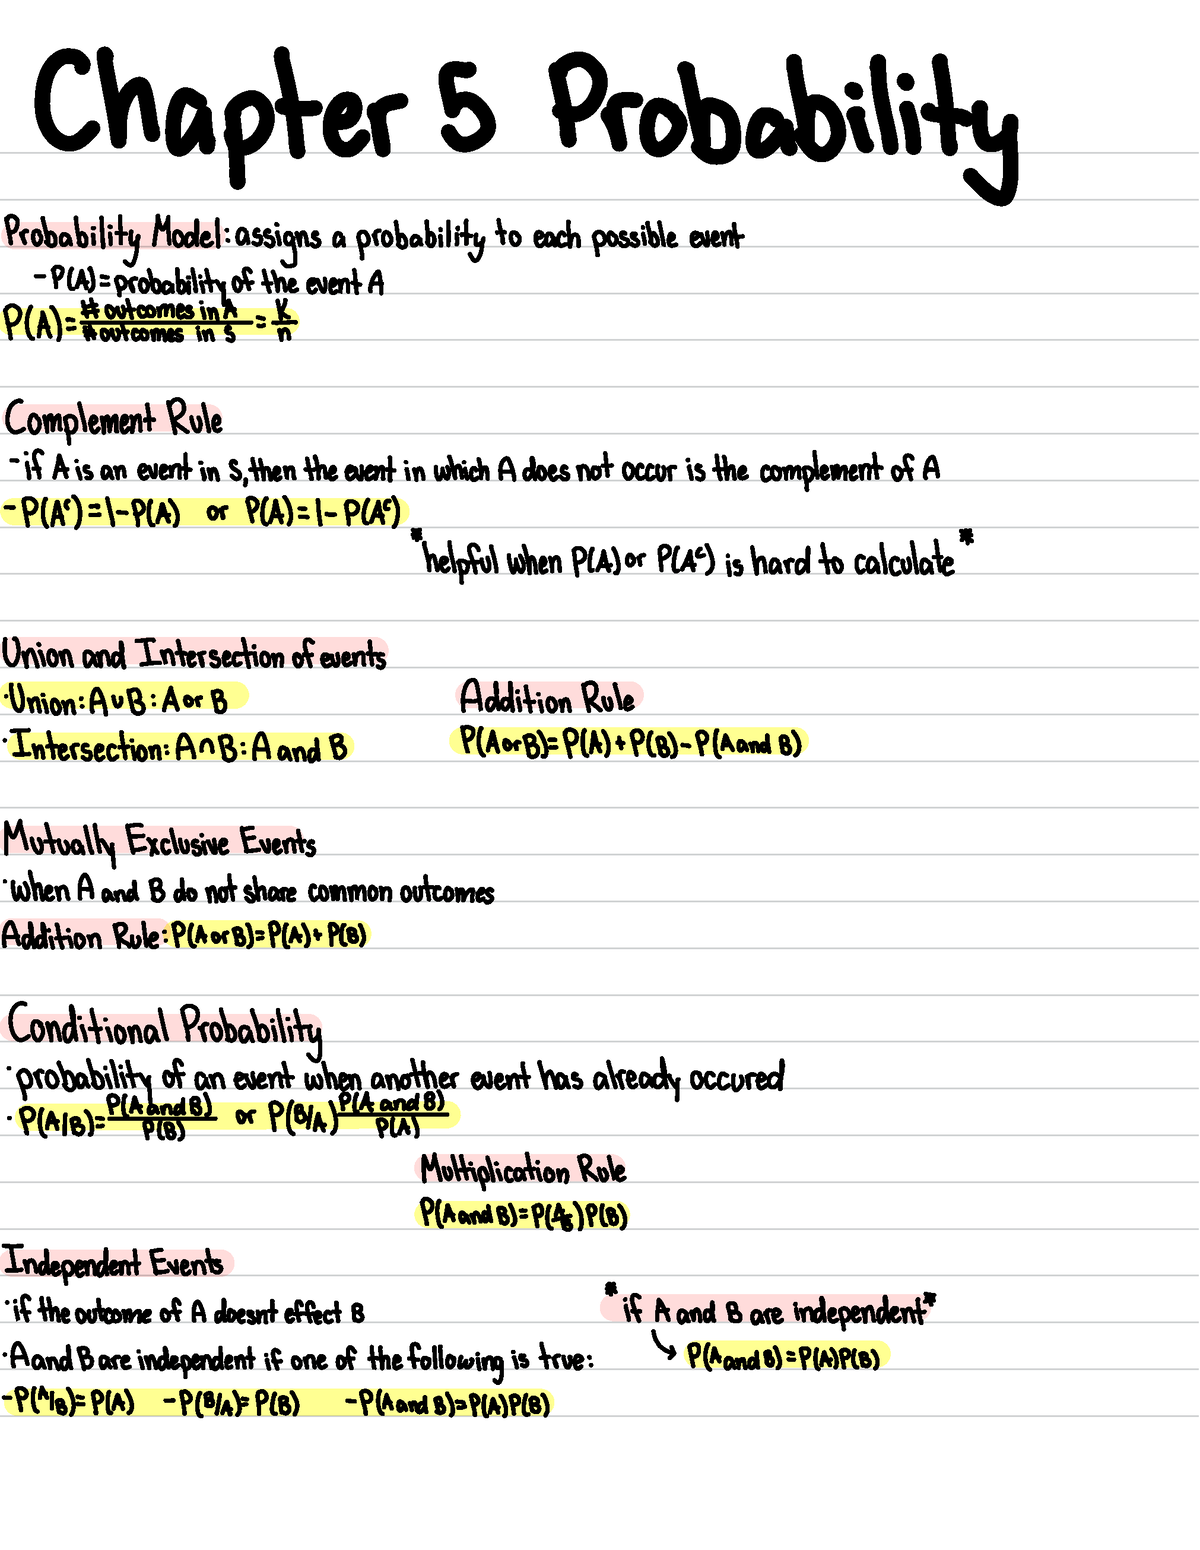 Chapter 5 Probability
Probability Model: assigns a probability to each possible event
- P(A) = probability of the event A
P(A) = # outcomes in A / # outcomes in S = K/n
Complement Rule
- if A is an event in S, then the event in which A does not occur is the complement of A
- P(Aᶜ) = 1 - P(A) or P(A) = 1 - P(Aᶜ)
*helpful when P(A) or P(Aᶜ) is hard to calculate*
Union and Intersection of events
· Union: A∪B: A or B
· Intersection: A∩B: A and B
Addition Rule
P(A or B) = P(A) + P(B) - P(A and B)
Mutually Exclusive Events
· when A and B do not share common outcomes
Addition Rule: P(A or B) = P(A) + P(B)
Conditional Probability
· probability of an event when another event has already occured
· P(A/B) = P(A and B) / P(B) or P(B/A) P(A and B) / P(A)
Multiplication Rule
P(A and B) = P(A/B) P(B)
Independent Events
· if the outcome of A doesnt effect B
· A and B are independent if one of the following is true:
- P(A/B) = P(A) - P(B/A) = P(B) - P(A and B) = P(A)P(B)
*if A and B are independent*
→ P(A and B) = P(A)P(B)